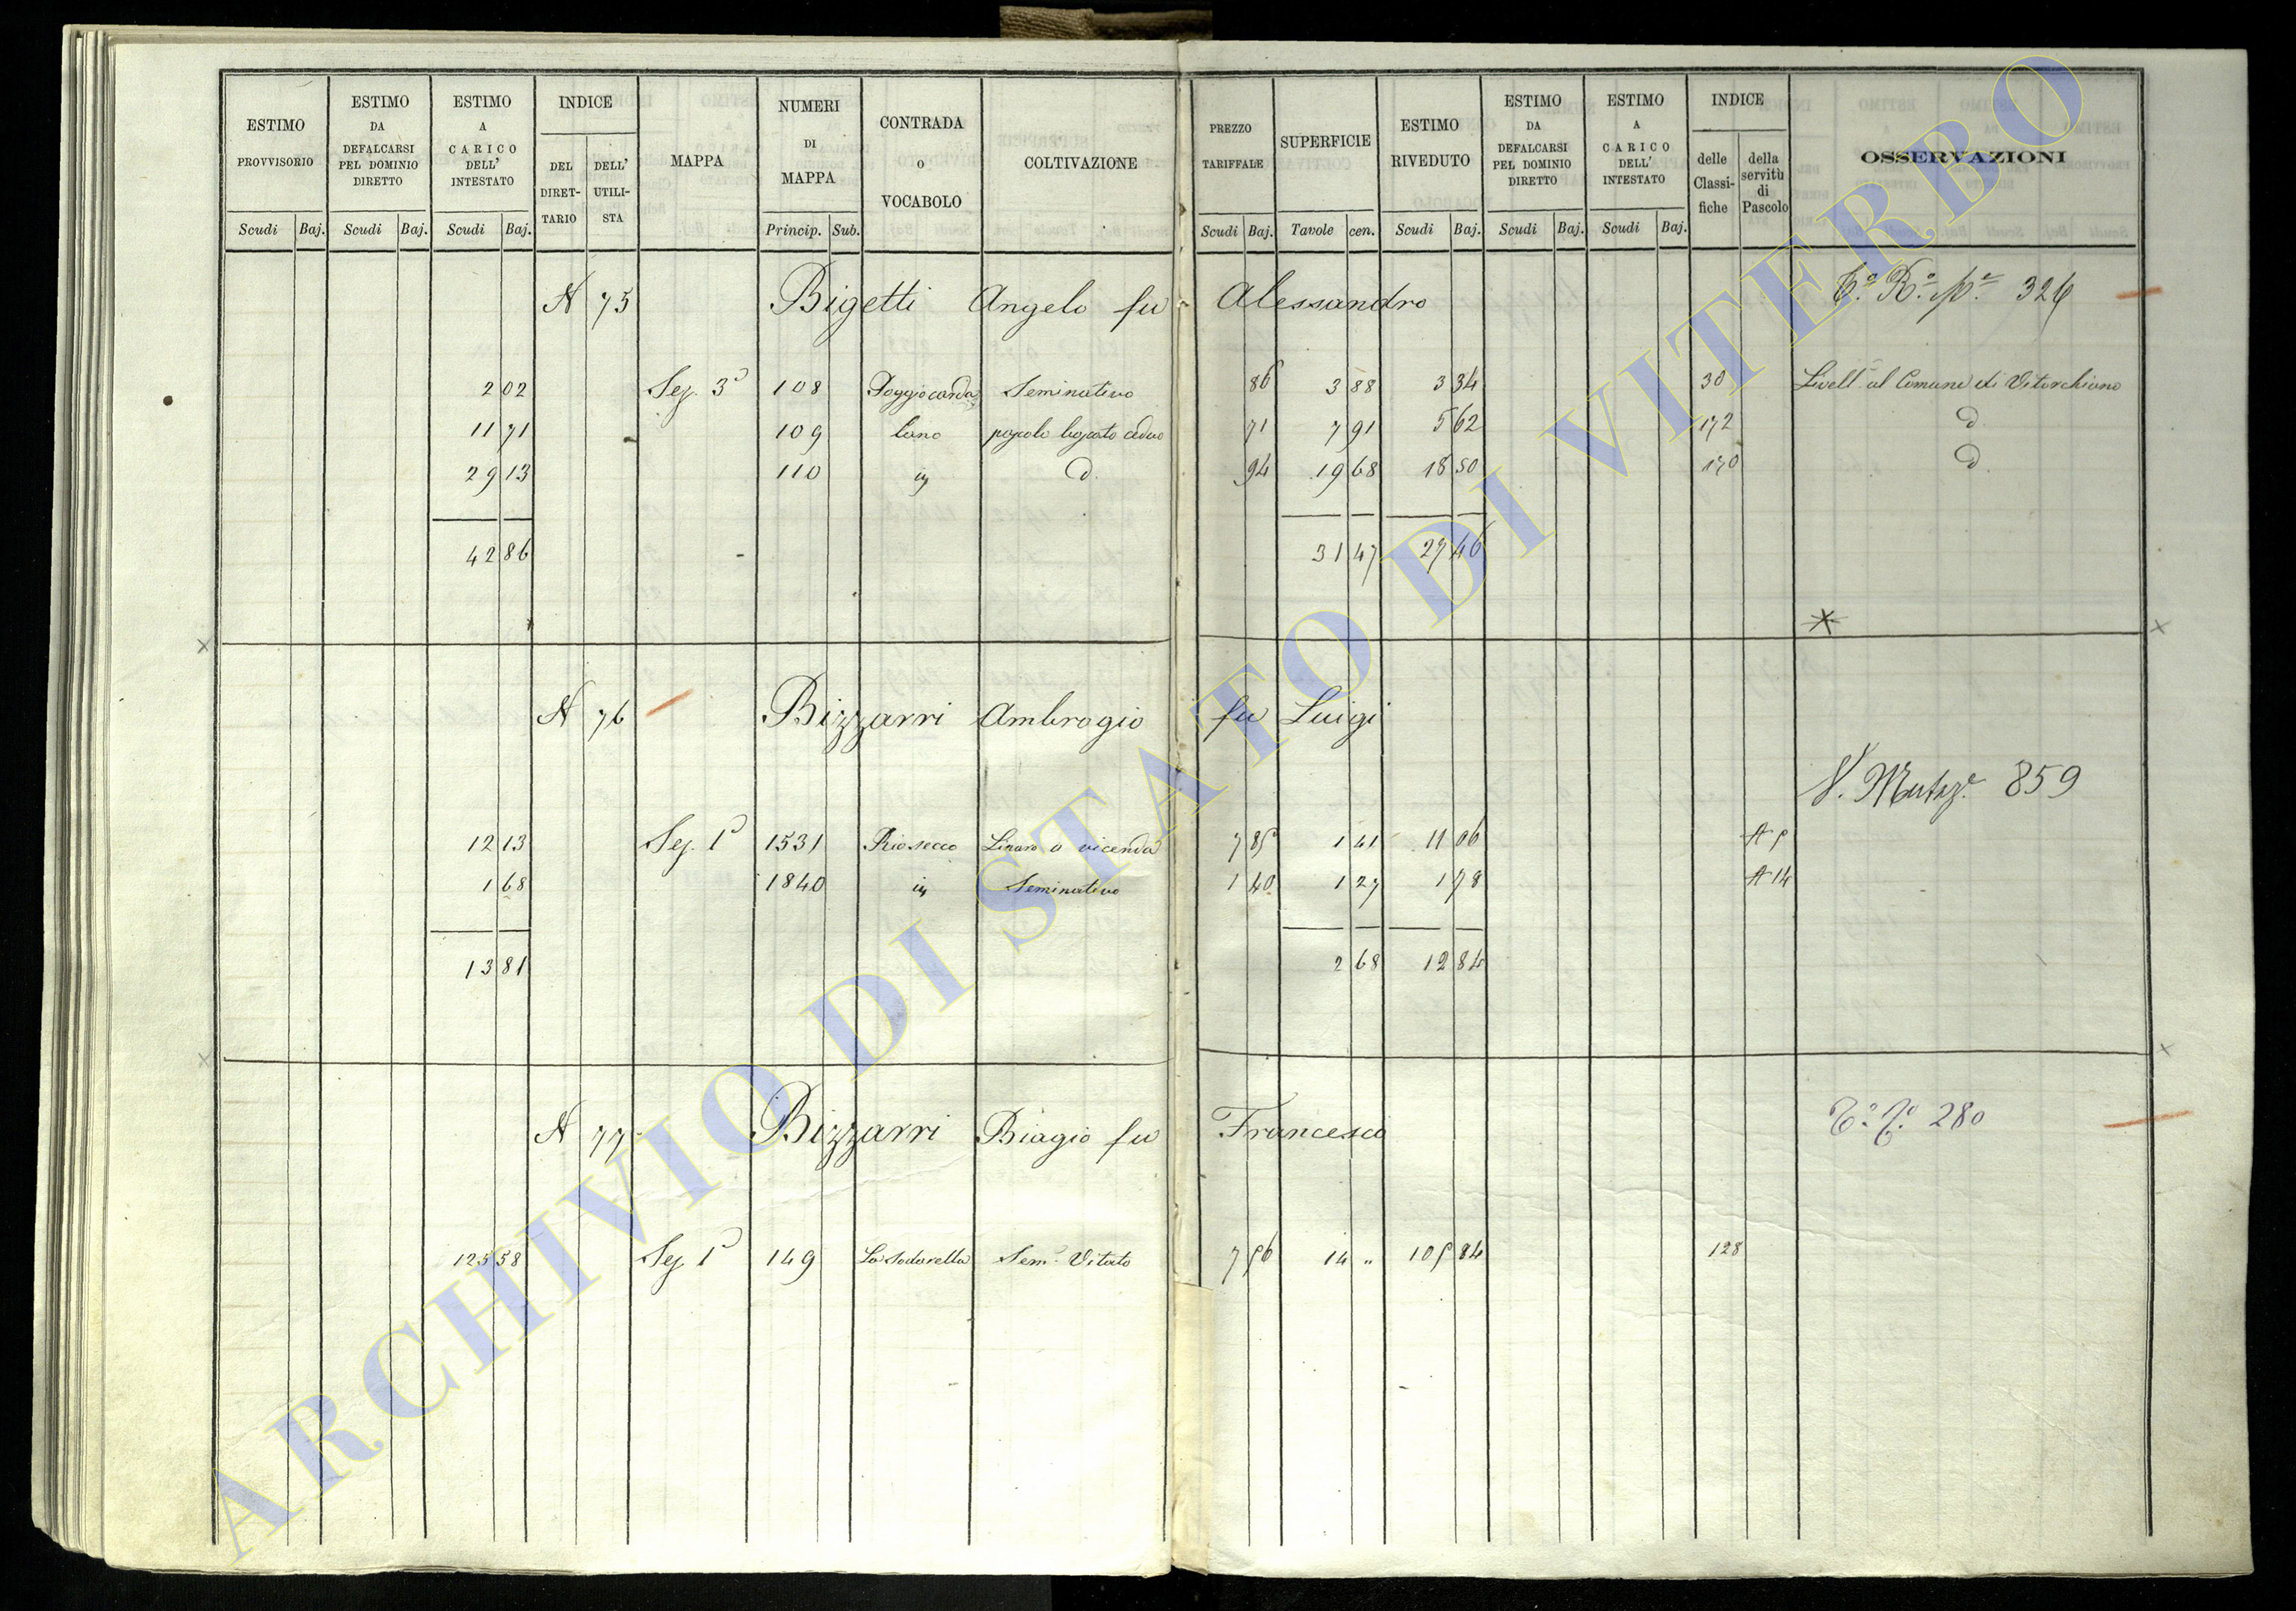 ESTIMO PROVVISORIO
ESTIMO DA DEFALCARSI PEL DOMINIO DIRETTO
ESTIMO A CARICO DELL' INTESTATO
INDICE
DEL DIRETTARIO
DELL' UTILISTA
MAPPA
NUMERI DI MAPPA
CONTRADA O VOCABOLO
COLTIVAZIONE
PREZZO TARIFFALE
SUPERFICIE
ESTIMO RIVEDUTO
ESTIMO DA DEFALCARSI PEL DOMINIO DIRETTO
ESTIMO A CARICO DELL' INTESTATO
INDICE
delle Classifiche
della servitù di Pascolo
OSSERVAZIONI
Scudi Baj. Scudi Baj. Scudi Baj. Princip. Sub. Scudi Baj. Tavole cen. Scudi Baj. Scudi Baj. Scudi Baj.
N 75 Bigetti Angelo fu Alessandro 326
2 02 Sez. 3ª 108 Poggio Seminativo 86 3 88 3 34 30 Livell. al Comune di Vitorchiano
11 71 109 pascolo boscato ceduo 71 7 91 5 62 172 d
29 13 110 d. 94 19 68 18 50 170 d.
42 86 31 47 27 46
N 76 Bizzarri Ambrogio fu Luigi
V. Mutaz.e 859
12 13 Sez. 1ª 1531 Riosecco a vicenda 7 85 1 41 11 06 A 5
1 68 1840 Seminativo 1 40 1 27 1 78 A 14
13 81 2 68 12 84
N 77 Bizzarri Biagio fu Francesco 280
125 58 Sez. 1ª 149 La Sodarella Sem. Vitato 7 56 14 " 105 84 128
ARCHIVIO DI STATO DI VITERBO